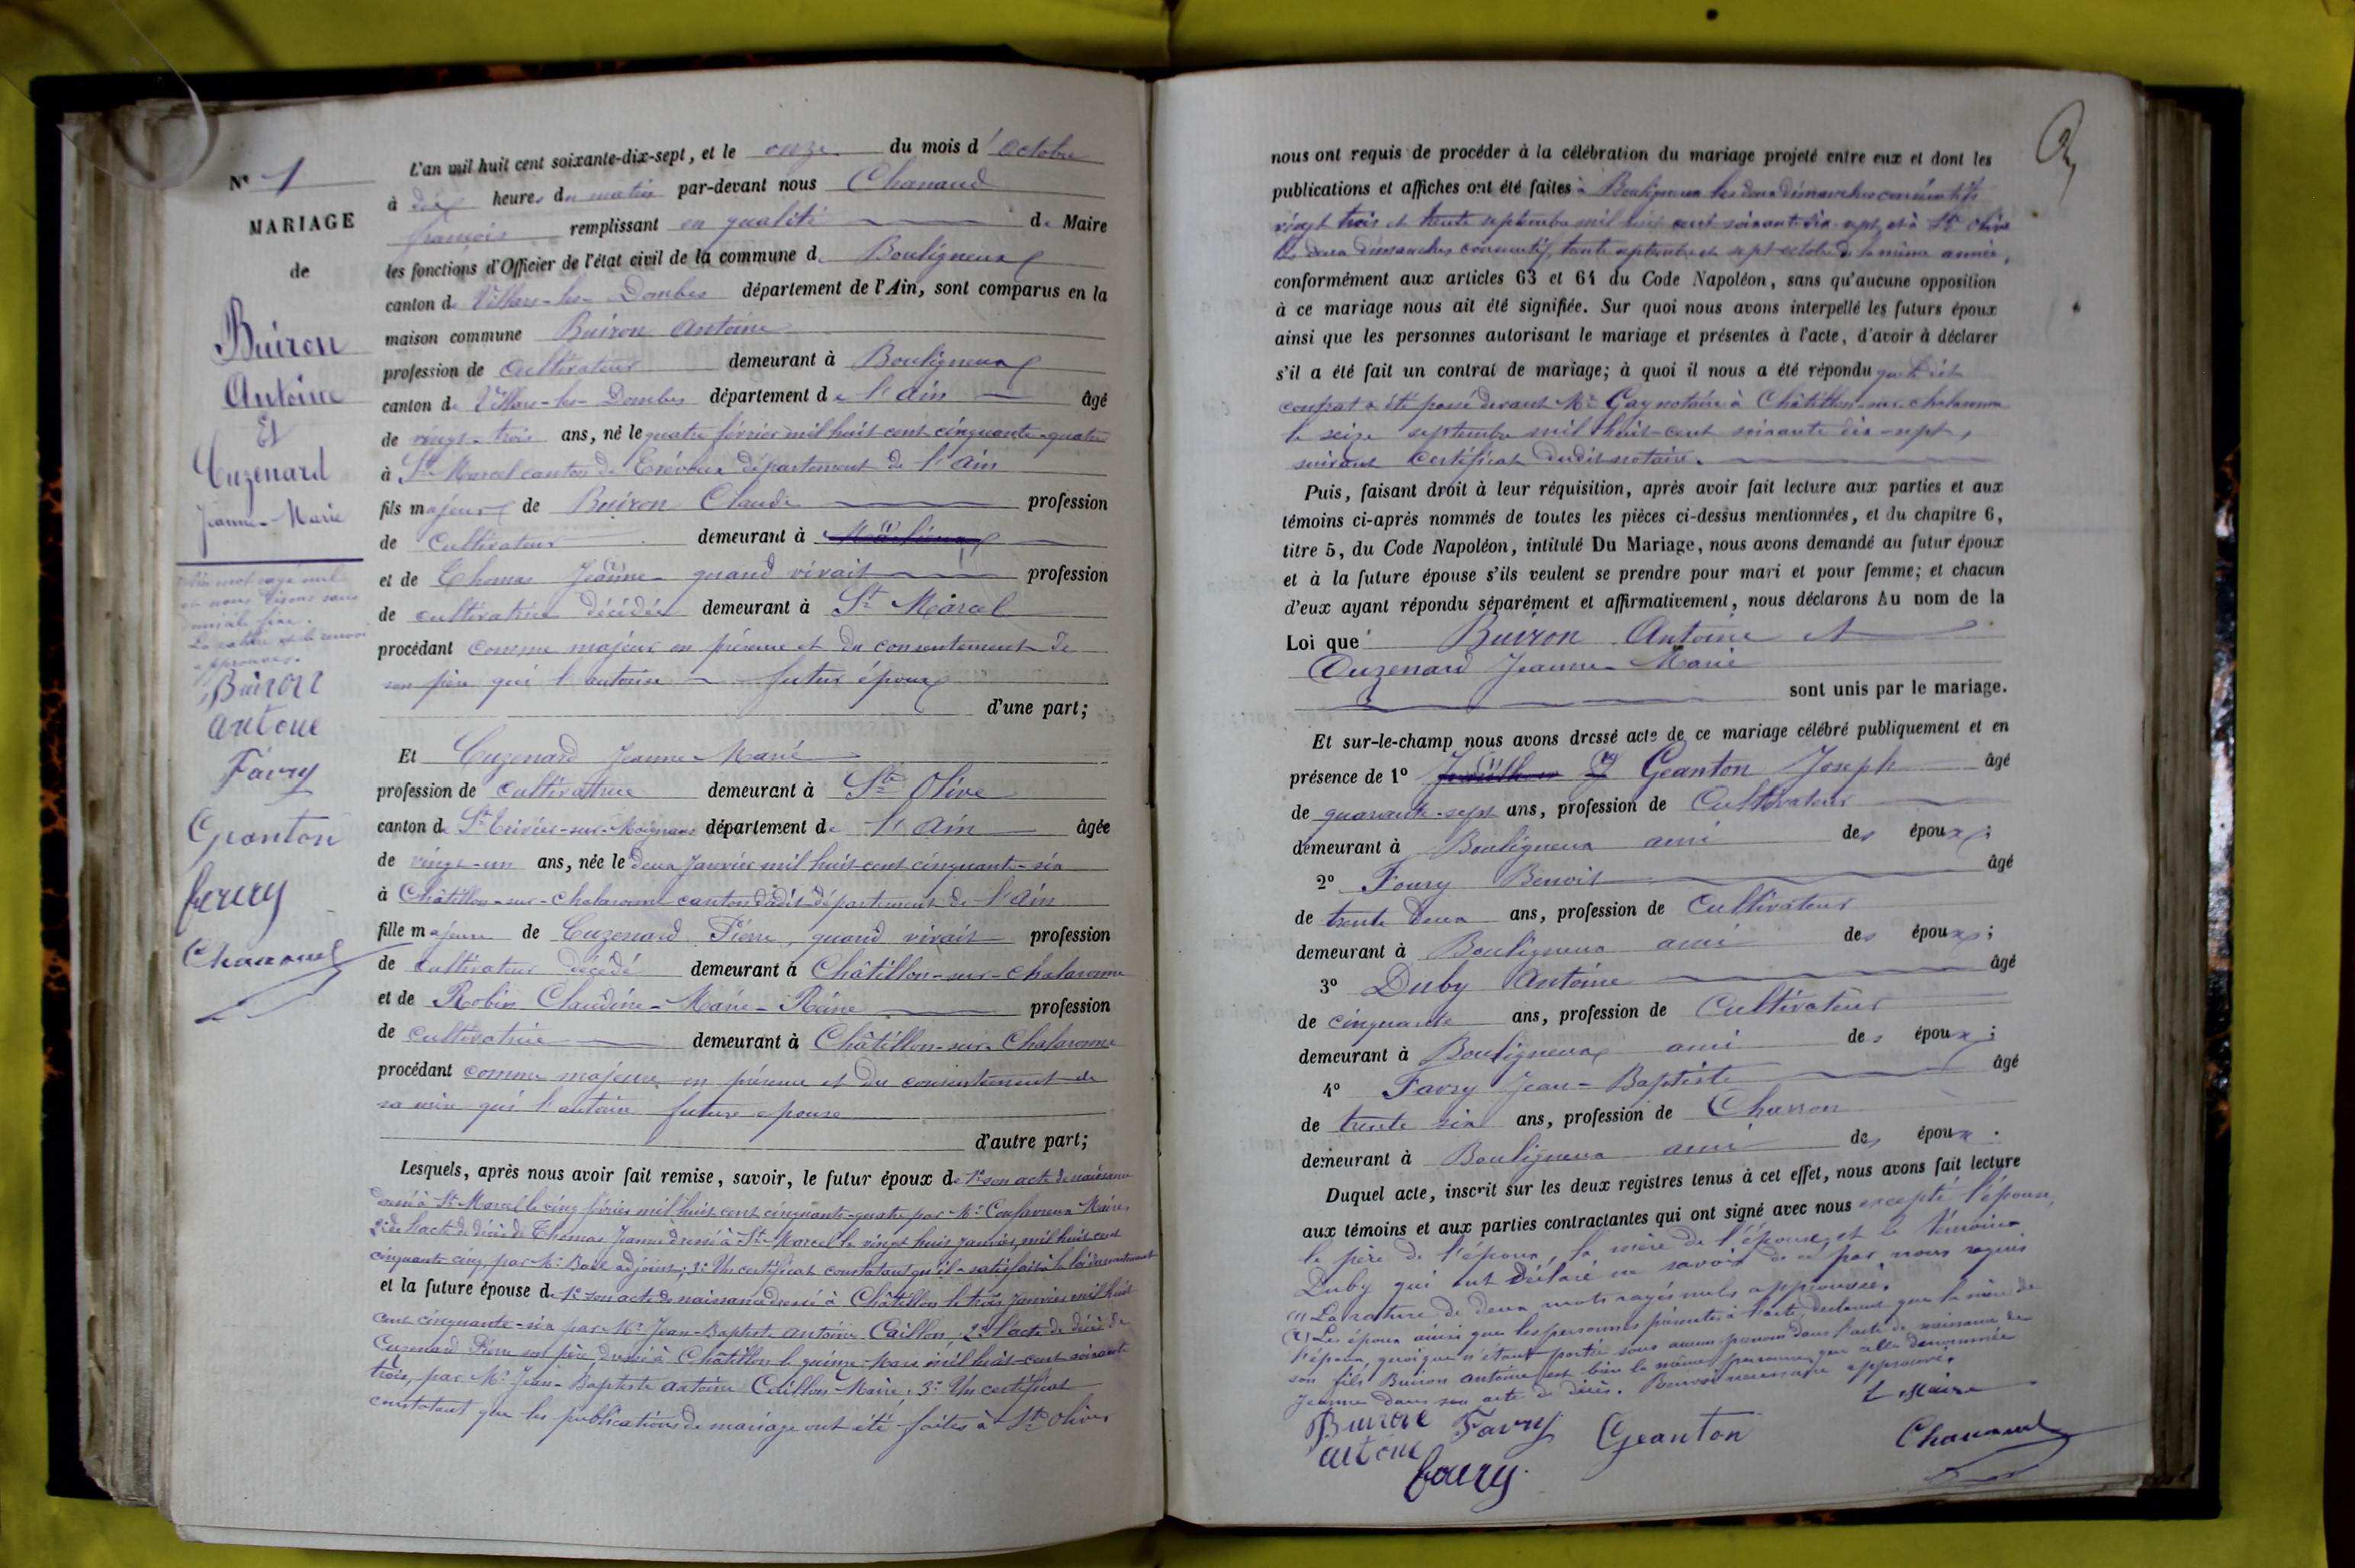 N° 1
MARIAGE
de
Buiron
Antoine
Et
Cuzenard
Jeanne-Marie
mot rayé nul
nous disons sans
domicile fixe.
La rature et le renvoi
approuvés.
Buiron
antoine
Favry
Geanton
foury
Chanaud
L'an mil huit cent soixante-dix-sept, et le onze du mois d'octobre
à dix heures du matin par-devant nous Chanaud
françois remplissant en qualité de Maire
les fonctions d'Officier de l'état civil de la commune de Bouligneux
canton de Villars-les-Dombes département de l'Ain, sont comparus en la
maison commune Buiron Antoine
profession de Cultivateur demeurant à Bouligneux
canton de Villars-les-Dombes département de l'Ain âgé
de vingt-trois ans, né le quatre février mil huit cent cinquante-quatre
à St Marcel canton de Trévoux département de l'Ain
fils majeur de Buiron Claude profession
de Cultivateur demeurant à
et de Thomas Jeanne quand vivait profession
de cultivatrice décédée demeurant à St Marcel
procédant comme majeur en présence et du consentement de
son père qui l'autorise futur époux
d'une part;
Et Cuzenard Jeanne-Marie
profession de Cultivatrice demeurant à Ste Olive
canton de St Trivier-sur-Moignans département de l'Ain âgée
de vingt-un ans, née le deux Janvier mil huit cent cinquante-six
à Châtillon-sur-Chalaronne canton dudit département de l'Ain
fille majeure de Cuzenard Pierre, quand vivait profession
de cultivateur décédé demeurant à Châtillon-sur-Chalaronne
et de Robin Claudine-Marie-Reine profession
de cultivatrice demeurant à Châtillon-sur-Chalaronne
procédant comme majeure en présence et du consentement de
sa mère qui l'autorise future epouse
d'autre part;
Lesquels, après nous avoir fait remise, savoir, le futur époux de 1° son acte de naissance
dressé à St Marcel le cinq février mil huit cent cinquante-quatre par Mr Maire
2° de l'acte de décès de Thomas Jeanne dressé à St Marcel le vingt huit janvier mil huit cent
cinquante cinq par Mr adjoint; 3° Un certificat constatant qu'il a satisfait à la loi du recrutement
et la future épouse de 1° son acte de naissance dressé à Châtillon le trois Janvier mil huit
cent cinquante-six par Mr Jean-Baptiste Antoine Caillon 2° l'acte de décès de
Cuzenard Pierre son père, dressé à Châtillon le quinze Mars mil huit-cent soixante
trois, par Mr Jean-Baptiste Antoine Caillon Maire; 3° Un certificat
constatant que les publications de mariage ont été faites à Ste Olive
nous ont requis de procéder à la célébration du mariage projeté entre eux et dont les
publications et affiches ont été faites à Bouligneux les deux dimanches consécutifs
vingt trois et trente septembre mil huit cent soixante dix-sept, et à Ste Olive
les deux dimanches consécutifs, trente septembre et sept octobre de la même année,
conformément aux articles 63 et 64 du Code Napoléon, sans qu'aucune opposition
à ce mariage nous ait été signifiée. Sur quoi nous avons interpellé les futurs époux
ainsi que les personnes autorisant le mariage et présentes à l'acte, d'avoir à déclarer
s'il a été fait un contrat de mariage; à quoi il nous a été répondu que le dit
contrat a été passé devant Me Gay notaire à Châtillon-sur-Chalaronne
le seize septembre mil huit-cent soixante dix-sept,
suivant certificat dudit notaire.
Puis, faisant droit à leur réquisition, après avoir fait lecture aux parties et aux
témoins ci-après nommés de toutes les pièces ci-dessus mentionnées, et du chapitre 6,
titre 5, du Code Napoléon, intitulé Du Mariage, nous avons demandé au futur époux
et à la future épouse s'ils veulent se prendre pour mari et pour femme; et chacun
d'eux ayant répondu séparément et affirmativement, nous déclarons Au nom de la
Loi que Buiron Antoine et
Cuzenard Jeanne-Marie
sont unis par le mariage.
Et sur-le-champ nous avons dressé acte de ce mariage célébré publiquement et en
présence de 1° Geanton Joseph âgé
de quarante-sept ans, profession de Cultivateur
demeurant à Bouligneux ami des époux;
2° Foury Benoit âgé
de trente deux ans, profession de Cultivateur
demeurant à Bouligneux ami des époux;
3° Duby Antoine âgé
de cinquante ans, profession de Cultivateur
demeurant à Bouligneux ami des époux;
4° Favry Jean-Baptiste âgé
de trente six ans, profession de Charron
demeurant à Bouligneux ami des époux.
Duquel acte, inscrit sur les deux registres tenus à cet effet, nous avons fait lecture
aux témoins et aux parties contractantes qui ont signé avec nous excepté l'épouse,
le père de l'époux, la mère de l'épouse, et le témoin
Duby qui ont déclaré ne savoir de ce par nous requis
(1) La rature de deux mots rayés nuls approuvée.
(2) Les époux ainsi que les personnes présentes à l'acte, déclarent que la mère de
l'époux, quoique n'étant portée sous aucun prénom dans l'acte de naissance de
son fils Buiron Antoine est bien la même personne que celle dénommée
Jeanne dans son acte de décès. Renvoi nécessaire approuvé.
Le Maire
Buirone Favry Geanton Chanaud
antoine foury